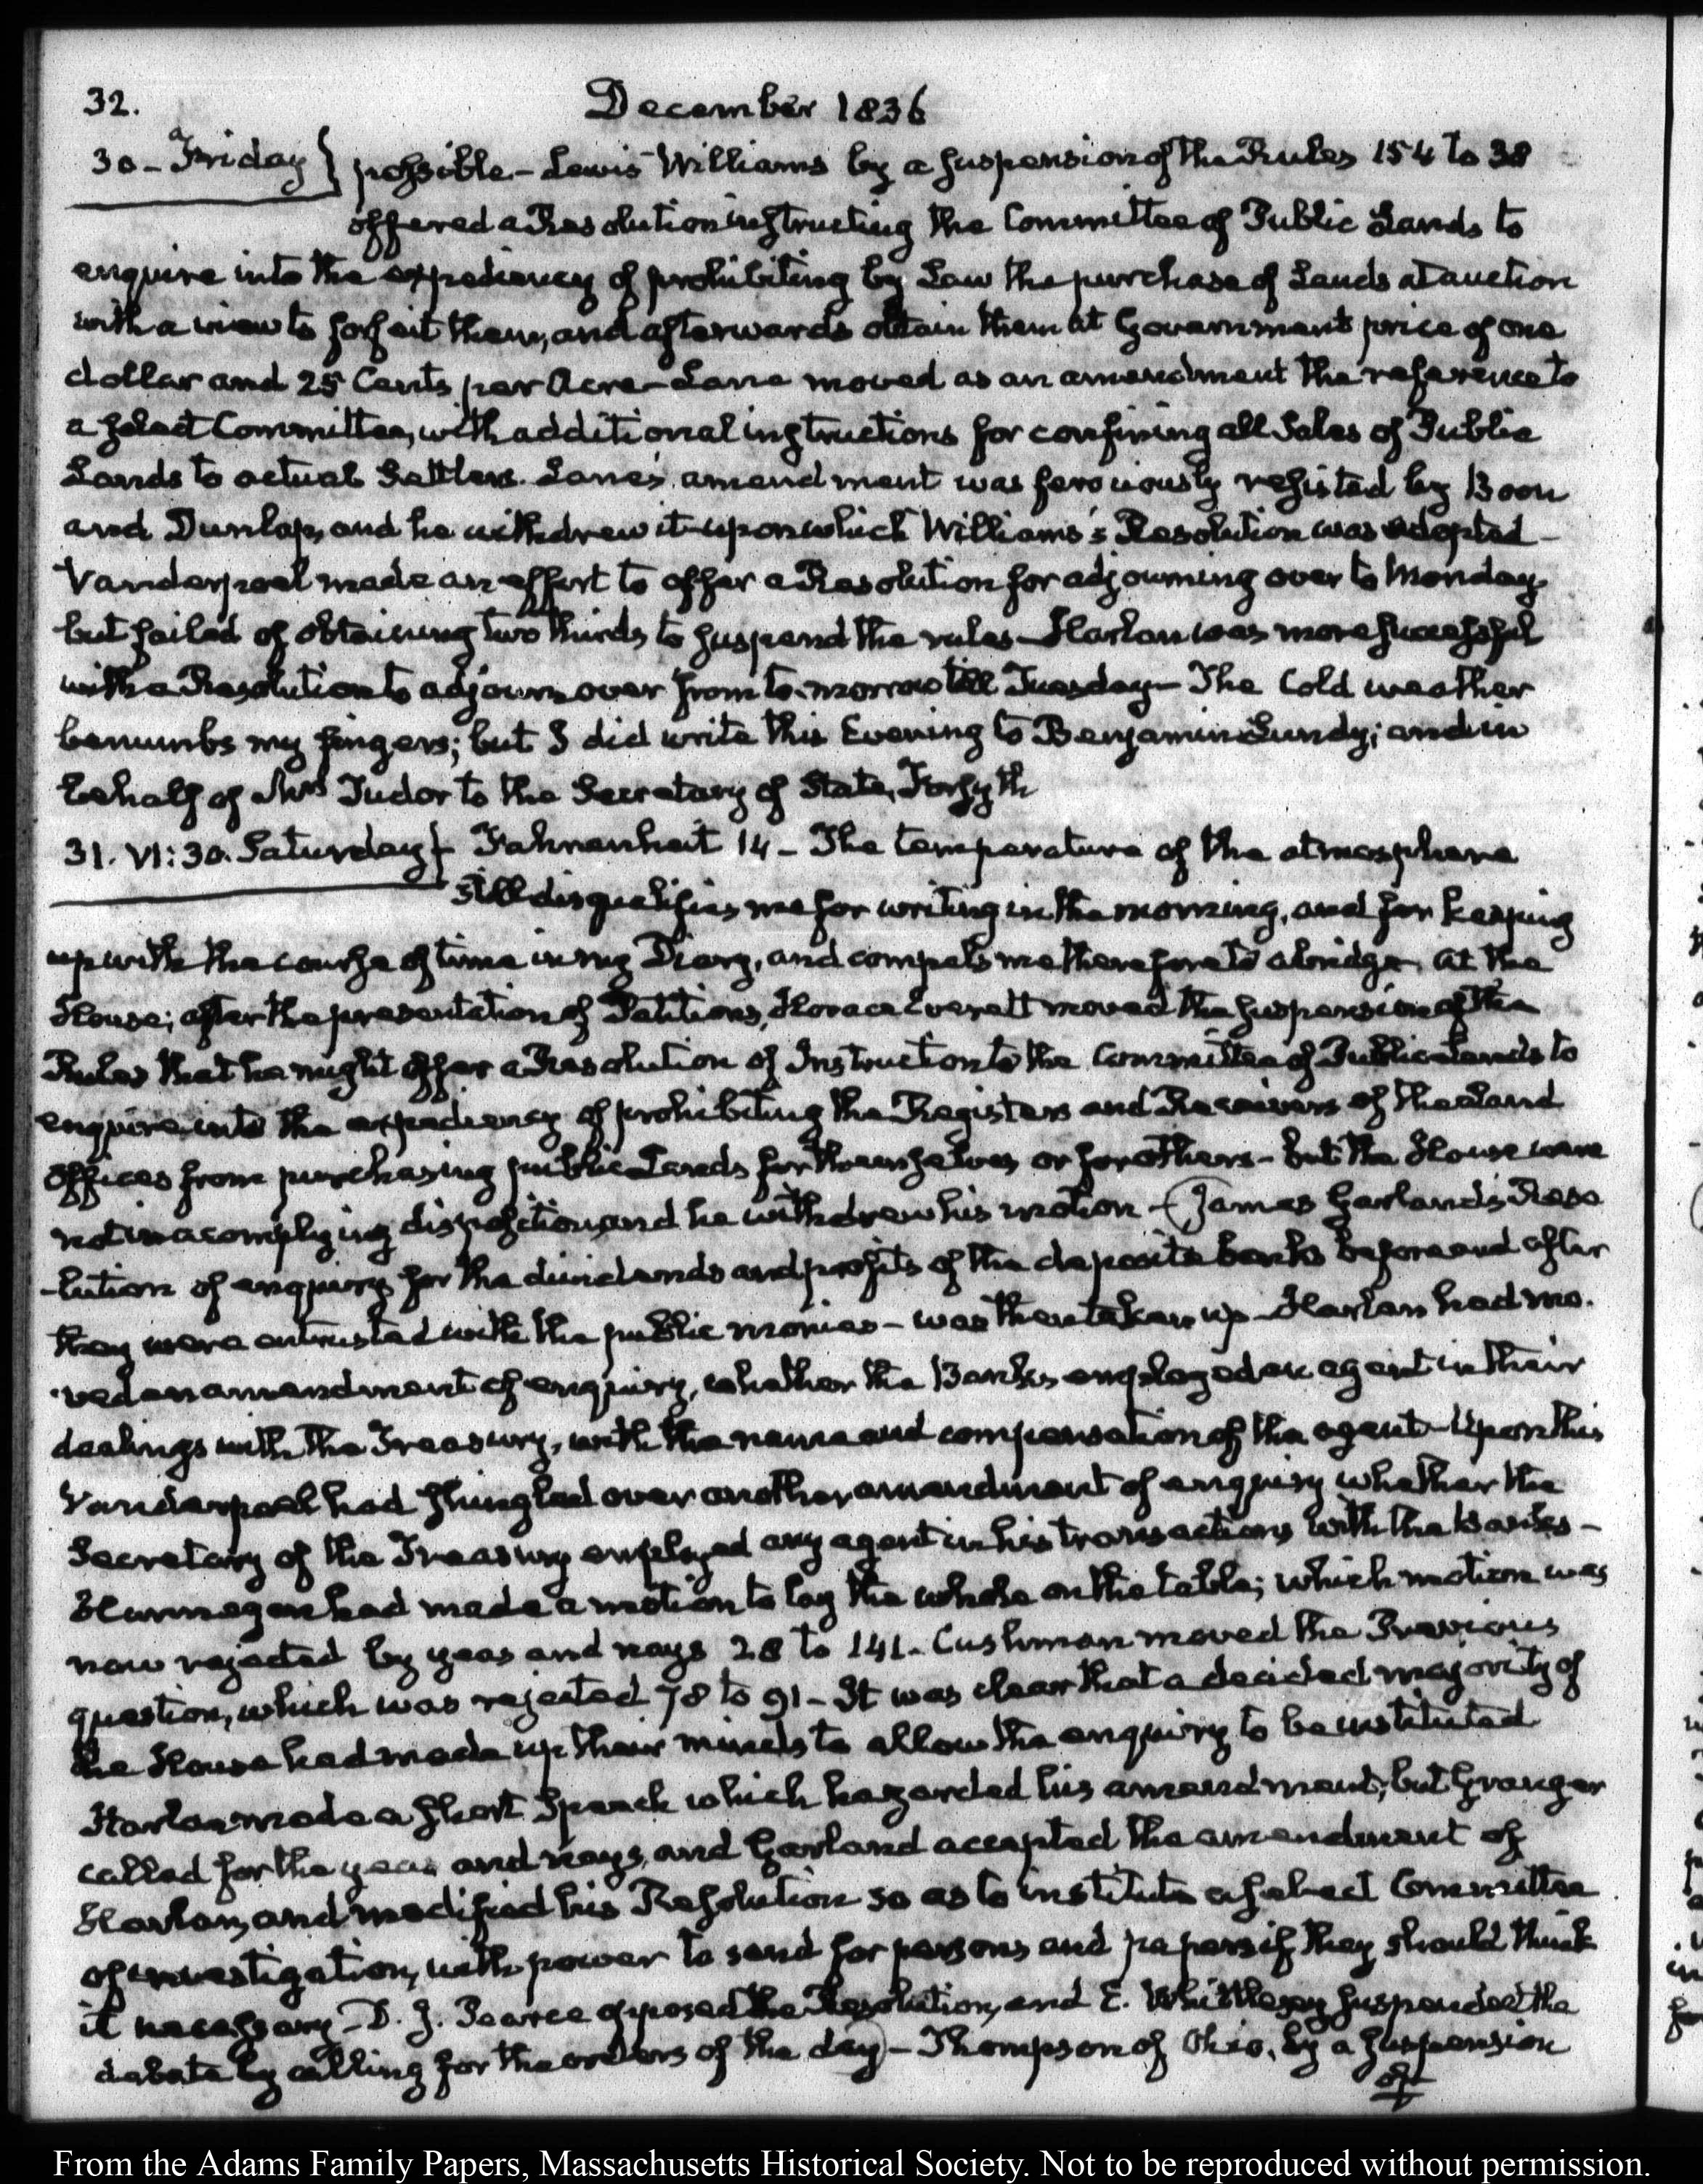 32.
December 1836
30 - Friday } possible - Lewis Williams by a suspension of the Rules 154 to 38
offered a Resolution instructing the Committee of Public Lands to
enquire into the expediency of prohibiting by Law the purchase of Lands at auction
with a view to forfeit them, and afterwards obtain them at Government price of one
dollar and 25 Cents per Acre - Lane moved as an amendment the reference to
a select Committee, with additional instructions for confining all Sales of Public
Lands to actual Settlers. Lane's amendment was ferociously resisted by Boon
and Dunlap, and he withdrew it - upon which Williams's Resolution was adopted -
Vanderpoel made an effort to offer a Resolution for adjourning over to Monday
but failed of obtaining two thirds to suspend the rules - Harlan was more successful
with a Resolution to adjourn over from to-morrow till Tuesday - The Cold weather
benumbs my fingers; but I did write this Evening to Benjamin Lundy; and in
behalf of Mrs Tudor to the Secretary of State, Forsyth
31. VI:30. Saturday } Fahrenheit 14 - The temperature of the atmosphere
still disqualifies me for writing in the morning, and for keeping
up with the course of time in my Diary, and compels me therefore to abridge. At the
House; after the presentation of Petitions, Horace Everett moved the suspension of the
Rules that he might offer a Resolution of Instruction to the Committee of Public Lands to
enquire into the expediency of prohibiting the Registers and Receivers of the Land
Offices from purchasing public Lands for themselves or for others - but the House were
not in a complying disposition, and he withdrew his motion - (James Garland's Reso
-lution of enquiry for the dividends and profits of the deposite banks before and after
they were entrusted with the public monies - was then taken up - Harlan had mo.
ved an amendment of enquiry, whether the Banks employed an agent in their
dealings with the Treasury, with the name and compensation of the agent - Upon this
Vanderpoel had shingled over another amendment of enquiry whether the
Secretary of the Treasury employed any agent in his transactions with the Banks -
Hannegan had made a motion to lay the whole on the table; which motion was
now rejected by yeas and nays 28 to 141 - Cushman moved the Previous
question, which was rejected 78 to 91 - It was clear that a decided majority of
the House had made up their minds to allow the enquiry to be instituted
Harlan made a short Speech which hazarded his amendment; but Granger
called for the yeas and nays, and Garland accepted the amendment of
Harlan, and modified his Resolution so as to institute a select Committee
of investigation, with power to send for persons and papers if they should think
it necessary - D. J. Pearce opposed the Resolution, and E. Whittlesey suspended the
debate by calling for the orders of the day) - Thompson of Ohio, by a suspension
of
From the Adams Family Papers, Massachusetts Historical Society. Not to be reproduced without permission.